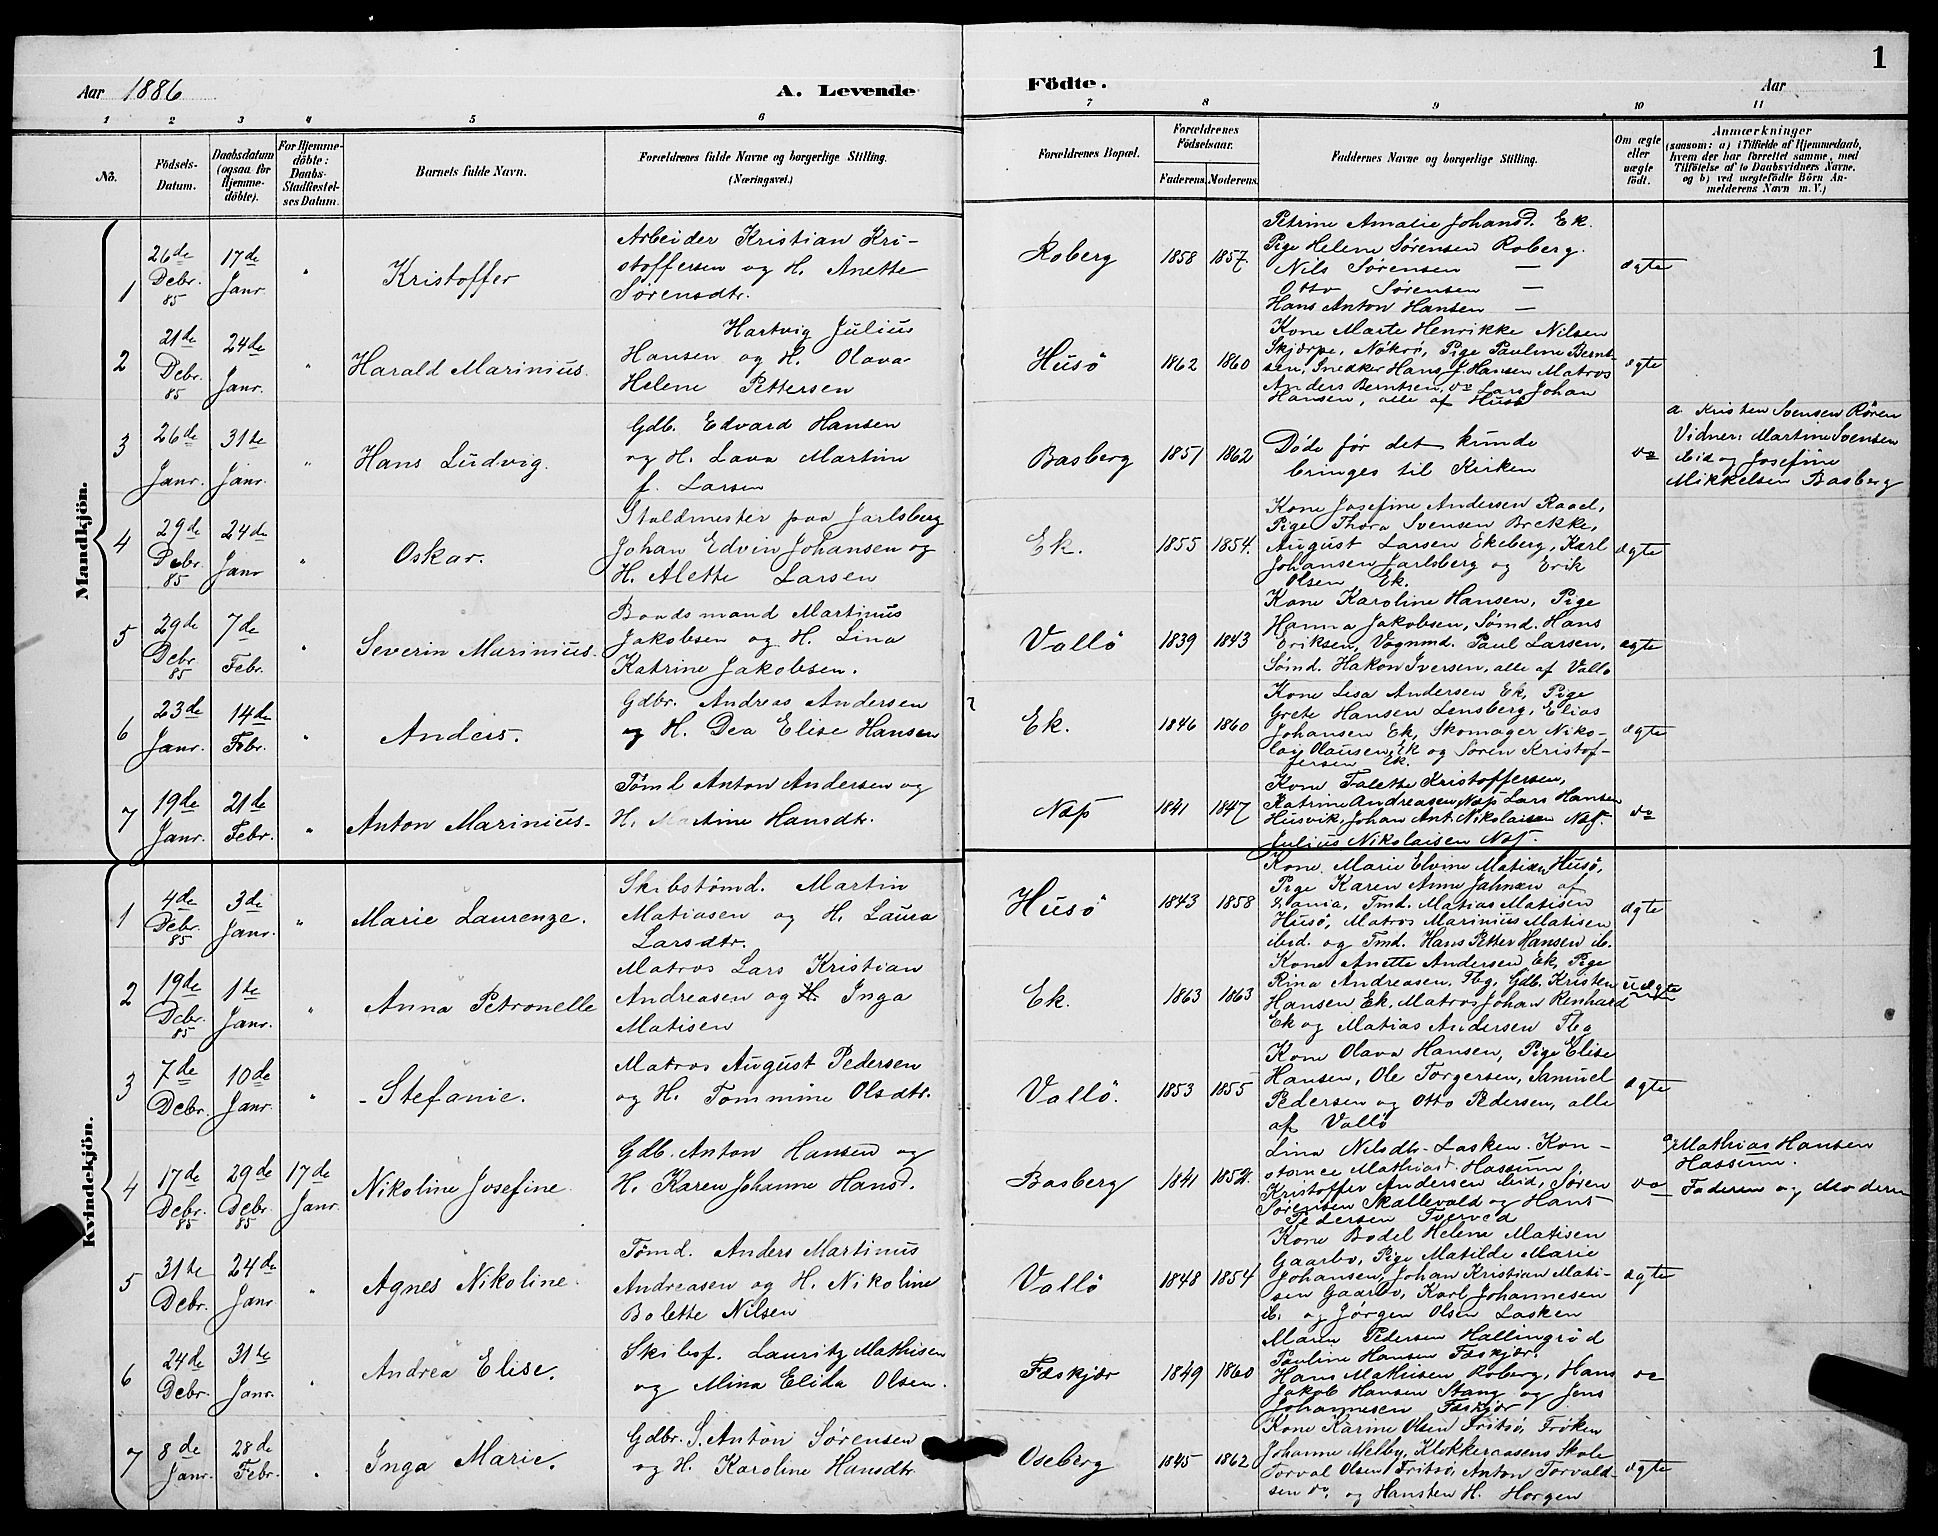 1
Aar 1886
A. Levende
Födte.
Aar
1 2 3 4 5 6 7 8 9 10 11
No.
Födsels-
Datum.
Daabsdatum
(ogsaa for
Hjemme-
döbte).
For Hjemme-
döbte:
Daabs-
Stadfæstel-
ses Datum.
Barnets fulde Navn.
Forældrenes fulde Navne og borgerlige Stilling.
(Næringsvei.)
Forældrenes Bopæl.
Forældrenes
Födselsaar.
Faderens. Moderens.
Faddernes Navne og borgerlige Stilling.
Om ægte
eller
uægte
födt.
Anmærkninger
(saasom: a) i Tilfælde af Hjemmedaab,
hvem der har forrettet samme, med
Tilföielse af to Daabsvidners Navne,
og b) ved uægtefödte Börn An-
melderens Navn m. V.)
Mandkjön.
1
26de
Debr.
85
17de
Janr
"
Kristoffer
Arbeider Kristian Kri-
stoffersen og H. Anette
Sørensdtr.
Roberg
1858
1857
Petrine Amalie Johansd. Ek.
Pige Helene Sørensen Roberg.
Nils Sørensen —
Otto Sørensen —
Hans Anton Hansen —
ægte
2
21de
Debr.
85
24de
Janr.
"
Harald Marinius.
Hartvig Julius
Hansen og H. Olava
Helene Pettersen
Husö
1862
1860
Kone Marte Henrikke Nilsen
Skjærpe, Nøkrø, Pige Pauline Bernt-
sen, Snedker Hans J. Hansen Matros
Anders Berntsen, do Lars Johan
Hansen, alle af Husö
ægte
3
26de
Janr.
31te
Janr.
"
Hans Ludvig.
Gdb. Edvard Hansen
og H. Lava Martine
f. Larsen
Basberg
1851
1862
Døde før det kunde
bringes til Kirken
do
a. Kristen Svensen Røren
Vidner: Martine Svensen
ibid og Josefine
Mikkelsen Basberg
4
29de
Debr.
85
24de
Janr
"
Oskar.
Staldmester paa Jarlsberg
Johan Edvin Johansen og
H. Alette Larsen
Ek.
1855
1854.
Kone Josefine Andersen Raael,
Pige Thora Svensen Brekke,
August Larsen Ekeberg, Karl
Johansen Jarlsberg og Erik
Olsen Ek.
ægte
5
29de
Debr.
85
7de
Febr.
"
Severin Marinius.
Baadsmand Martinus
Jakobsen og H. Lina
Katrine Jakobsen.
Vallö
1839
1843
Kone Karoline Hansen, Pige
Hanna Jakobsen, Sømd. Hans
Eriksen, Vognmd. Paul Larsen,
Sømd. Hakon Iversen, alle af Vallö
ægte
6
23de
Janr.
14de
Febr.
"
Anders.
Gdbr. Andreas Andersen
og H. Dea Elise Hansen
Ek.
1846
1860
Kone Lisa Andersen Ek, Pige
Grete Hansen Lensberg, Elias
Johansen Ek, Skomager Niko-
lai Olausen, Ek og Søren Kristof-
fersen Ek.
ægte
7
19de
Janr.
21de
Febr.
"
Anton Marinius.
Tømd Anton Andersen og
H. Martine Hansdtr.
Næs
1841
1847
Kone Talette Kristoffersen,
Katrine Andreasen Næs Lars Hansen
Husvik, Johan Ant. Nikolaisen Næs.
Julius Nikolaisen Næs.
do
Kvindekjön.
1
4de
Debr.
85
3de
Janr.
"
Marie Laurenze.
Skibstømd. Martin
Matiasen og H. Laura
Larsdtr.
Husö
1843
1858
Kone Marie Elvine Matisen Husö,
Pige Karen Anne Jahnsen af
Tmd. Matias Matisen
Husö, Matros Marinius Matisen
ibid. og Tmd. Hans Petter Hansen ib.
ægte
2
19de
Debr.
85
1te
Janr.
"
Anna Petronelle
Matros Lars Kristian
Andreasen og H. Inga
Matisen
Ek.
1863
1863
Kone Anette Andersen Ek, Pige
Rina Andreasen, Tbg, Gdb. Kristen
Hansen Ek, Matros Johan Renhard
Ek og Matias Andersen Tbg
uægte
3
7de
Debr.
10de
Janr.
"
Stefanie.
Matros August Pedersen
og H. Tommine Olsdtr.
Vallö.
1853
1855
Kone Olava Hansen, Pige Elise
Hansen, Ole Torgersen, Samuel
Pedersen og Otto Pedersen, alle
af Vallö
ægte
4
17de
Debr.
85
29de
Debr.
85
17de
Janr.
Nikoline Josefine.
Gdb. Anton Hansen og
H. Karen Johanne Hansd.
Basberg
1841
1852.
Lina Nilsdtr. Lasken. Kon-
stance Mathiasd. Hassum,
Kristoffer Andersen ibid, Søren
Sørensen Skallevald og Hans
Pedersen Tverved
do
a. Mathias Hansen
Hassum.
Faderen og Moderen
5
31te
Debr.
24de
Janr
"
Agnes Nikoline.
Tømd. Anders Martinus
Andreasen og H. Nikoline
Bolette Nilsen
Vallö
1848
1854
Kone Bodel Helene Matisen
Gaarbo, Pige Matilde Marie
Johansen, Johan Kristian Mati-
sen Gaarbo, Karl Johannesen
ib. og Jørgen Olsen Lasken
ægte
6
24de
Debr.
31te
Janr.
"
Andrea Elise.
Skibsf. Lauritz Mathisen
og Mina Elida Olsen.
Fæskjær
1849
1860
Maren Pedersen Hallingrød
Pauline Hansen Fæskjær.
Hans Mathisen Roberg, Hans
Jakob Hansen Stang og Jens
Johannesen Fæskjær
do
7
8de
Janr.
28de
Febr.
"
Inga Marie.
Gdbr. S. Anton Sørensen
og H. Karoline Hansdtr.
Oseberg
1845
1862
Kone Karine Olsen Fritsö, Frøken
Johanne Melby, Klokkeraasens Skole
Torval Olsen Fritsö, Anton Torvald-
sen do, og Hansten H. Horgen
ægte